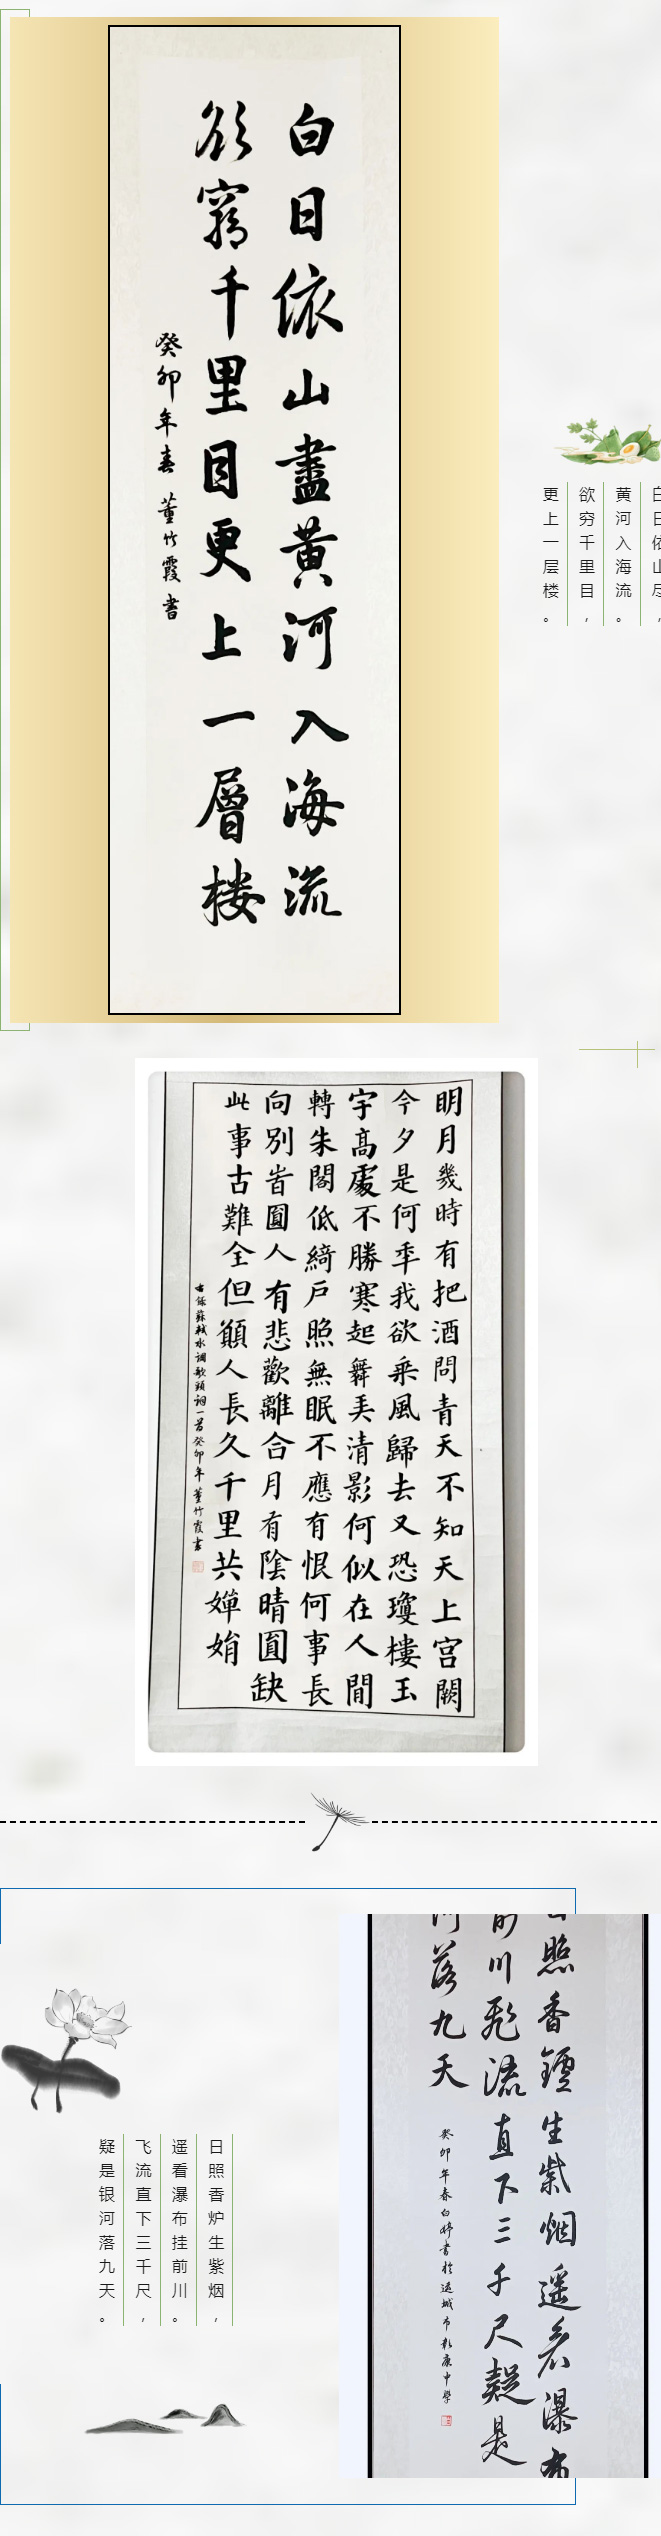 白日依山盡黃河入海流
欲窮千里目更上一層楼
癸卯年春 董竹霞書
白日依山尽，
黄河入海流。
欲穷千里目，
更上一层楼。
明月幾時有把酒問青天不知天上宫闕
今夕是何年我欲乘風歸去又恐瓊樓玉
宇高處不勝寒起舞弄清影何似在人間
轉朱閣低綺戶照無眠不應有恨何事長
向別旹圓人有悲歡離合月有陰晴圓缺
此事古難全但願人長久千里共嬋娟
右錄蘇軾水調歌頭詞一首癸卯年董竹霞書
照香鑪生紫烟遥看瀑布
前川飛流直下三千尺疑是
河落九天
癸卯年春白婷書於运城市
中學
日照香炉生紫烟，
遥看瀑布挂前川。
飞流直下三千尺，
疑是银河落九天。